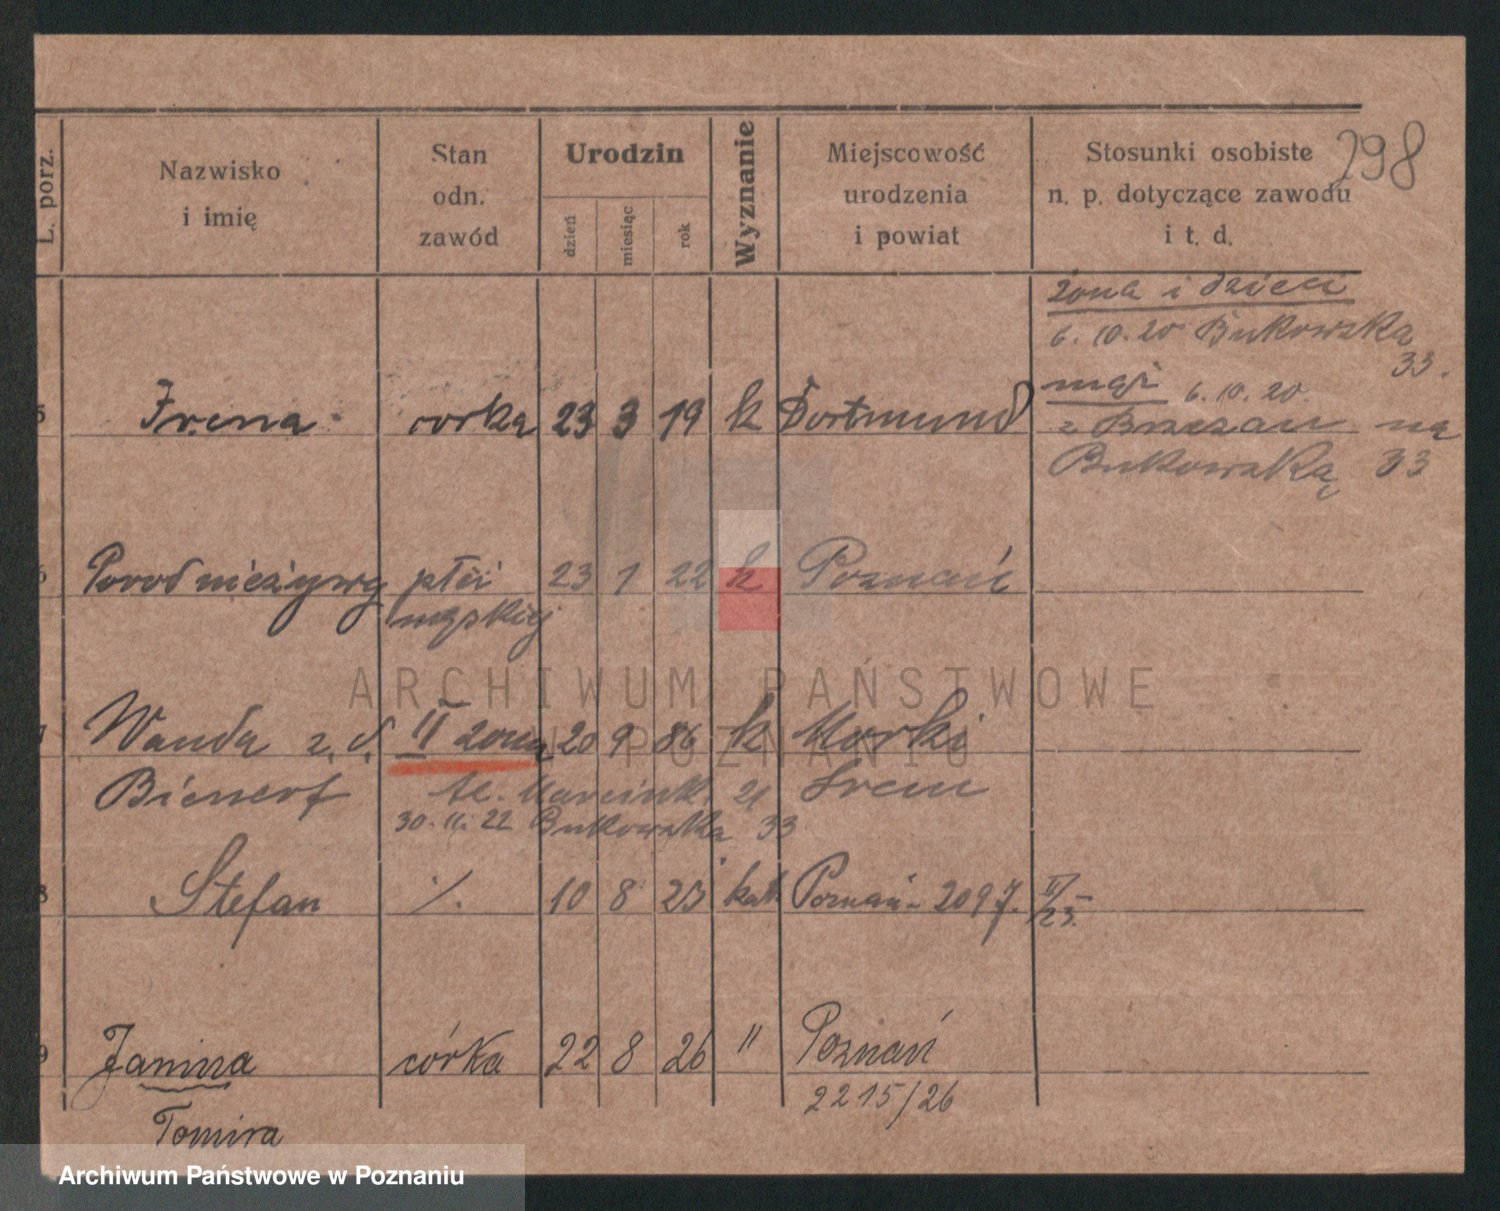 298
L. porz.
Nazwisko
i imię
Stan
odn.
zawód
Urodzin
dzień
miesiąc
rok
Wyznanie
Miejscowość
urodzenia
i powiat
Stosunki osobiste
n. p. dotyczące zawodu
i t. d.
żona i dzieci
6. 10. 20 Bukowska
33.
mąż 6. 10. 20.
5 Irena córka 23 3 19 k Dortmund
z Brzezan na
Bukowską 33
6 Poród nieżywy płci 23 1 22 k Poznań
męskiej
ARCHIWUM PAŃSTWOWE
W POZNANIU
7 Wanda z. d. II żona 20 9 86 k Morki
Bienert Marcink. 21 Śrem
30. 11. 22 Bukowska 33
8 Stefan ./. 10 8 23 kat. Poznań 2097. II/25.
9 Janina córka 22 8 26 " Poznań
2215/26
Tomira
Archiwum Państwowe w Poznaniu